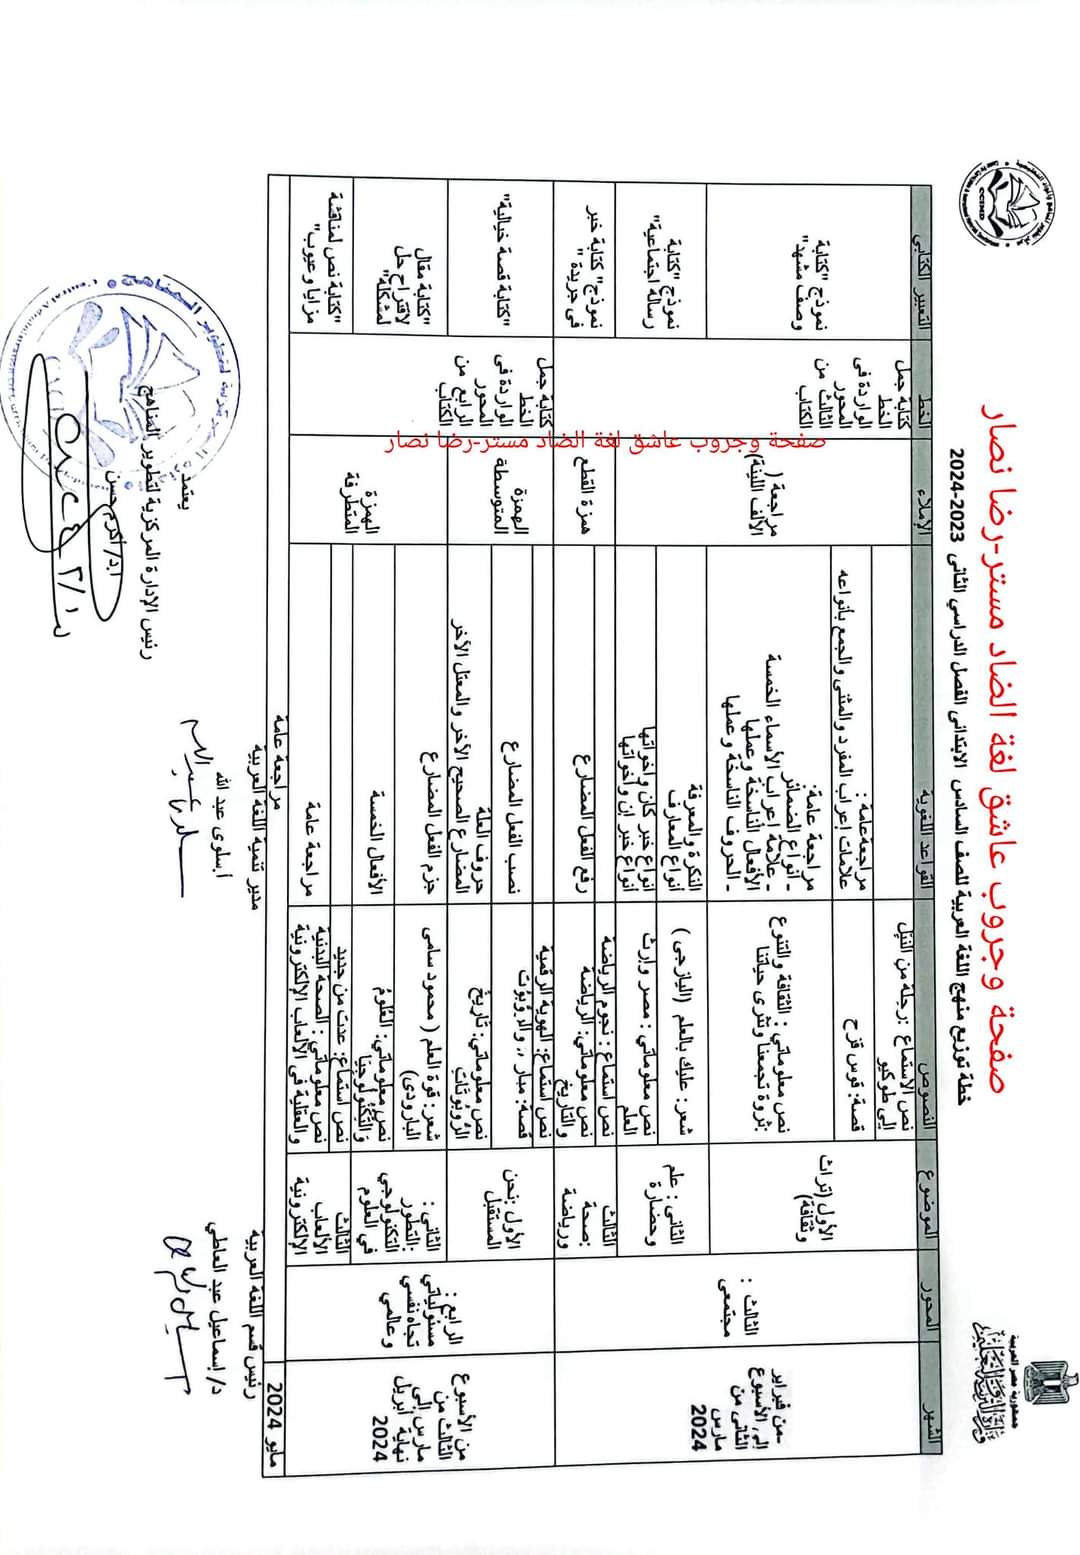 جمهورية مصر العربية
صفحة وجروب عاشق لغة الضاد مستر-رضا نصار
خطة توزيع منهج اللغة العربية للصف السادس الابتدائى الفصل الدراسي الثانى 2023-2024
الشهر
المحور
الموضوع
النصوص
القواعد اللغوية
الإملاء
الخط
التعبير الكتابي
-من فبراير
إلى الأسبوع
الثانى من
مارس
2024
الثالث :
مجتمعى
الأول (تراث
وثقافة)
نص الاستماع :رحلة من النيل
إلى طوكيو
قصة: قوس قزح
مراجعةعامة :
علامات إعراب المفرد والمثنى والجمع بأنواعه
نص معلوماتي : الثقافة والتنوع
:ثروة تجمعنا وتثرى حياتنا
مراجعة عامة:
- أنواع الضمائر
- علامة إعراب الأسماء الخمسة
- الأفعال الناسخة وعملها
- الحروف الناسخة وعملها
مراجعة (
الألف اللينة)
كتابة جمل
الخط
الواردة فى
المحور
الثالث من
الكتاب
نموذج "كتابة
وصف مشهد"
الثانى : علم
وحضارة
شعر: عليك بالعلم (اليازجى )
النكرة والمعرفة
أنواع المعارف
نص معلوماتي : مصر وإرث
العلم
أنواع خبر كان وأخواتها
أنواع خبر إن وأخواتها
نموذج "كتابة
رسالة اجتماعية"
الثالث
:صحة
ورياضة
نص استماع : نجوم الرياضة
نص معلوماتي: الرياضة
والتاريخ
رفع الفعل المضارع
همزة القطع
نموذج" كتابة خبر
في جريدة "
من الأسبوع
الثالث من
مارس إلى
نهاية أبريل
2024
الرابع :
مسئولياتي
تجاه نفسي
وعالمي
الأول :نحن
المستقبل
نص استماع: الهوية الرقمية
قصة: مبار ،، والروبوت
نصب الفعل المضارع
نص معلوماتي: تاريخ
الروبوتات
حروف العلة
المضارع الصحيح الآخر والمعتل الآخر
الهمزة
المتوسطة
كتابة جمل
الخط
الواردة فى
المحور
الرابع من
الكتاب
"كتابة قصة خيالية"
الثانى :
:التطور
التكنولوجي
في العلوم
شعر: قوة العلم ( محمود سامى
البارودى)
جزم الفعل المضارع
نص معلوماتي: العلوم
والتكنولوجيا
الأفعال الخمسة
الهمزة
المتطرفة
"كتابة مقال
لاقتراح حل
لمشكلة"
الثالث
الألعاب
الإلكترونية
نص استماع: عدت من جديد
نص معلوماتي : الصحة البدنية
والعقلية في الألعاب الإلكترونية
مراجعة عامة
"كتابة نص لمناقشة
مزايا وعيوب"
مايو 2024
مراجعة عامة
صفحة وجروب عاشق لغة الضاد مستر-رضا نصار
رئيس قسم اللغة العربية
د/ إسماعيل عبد العاطي
مدير تنمية اللغة العربية
أ.سلوى عبد الله
يعتمد،
رئيس الإدارة المركزية لتطوير المناهج
أ.د/ أكرم حسن